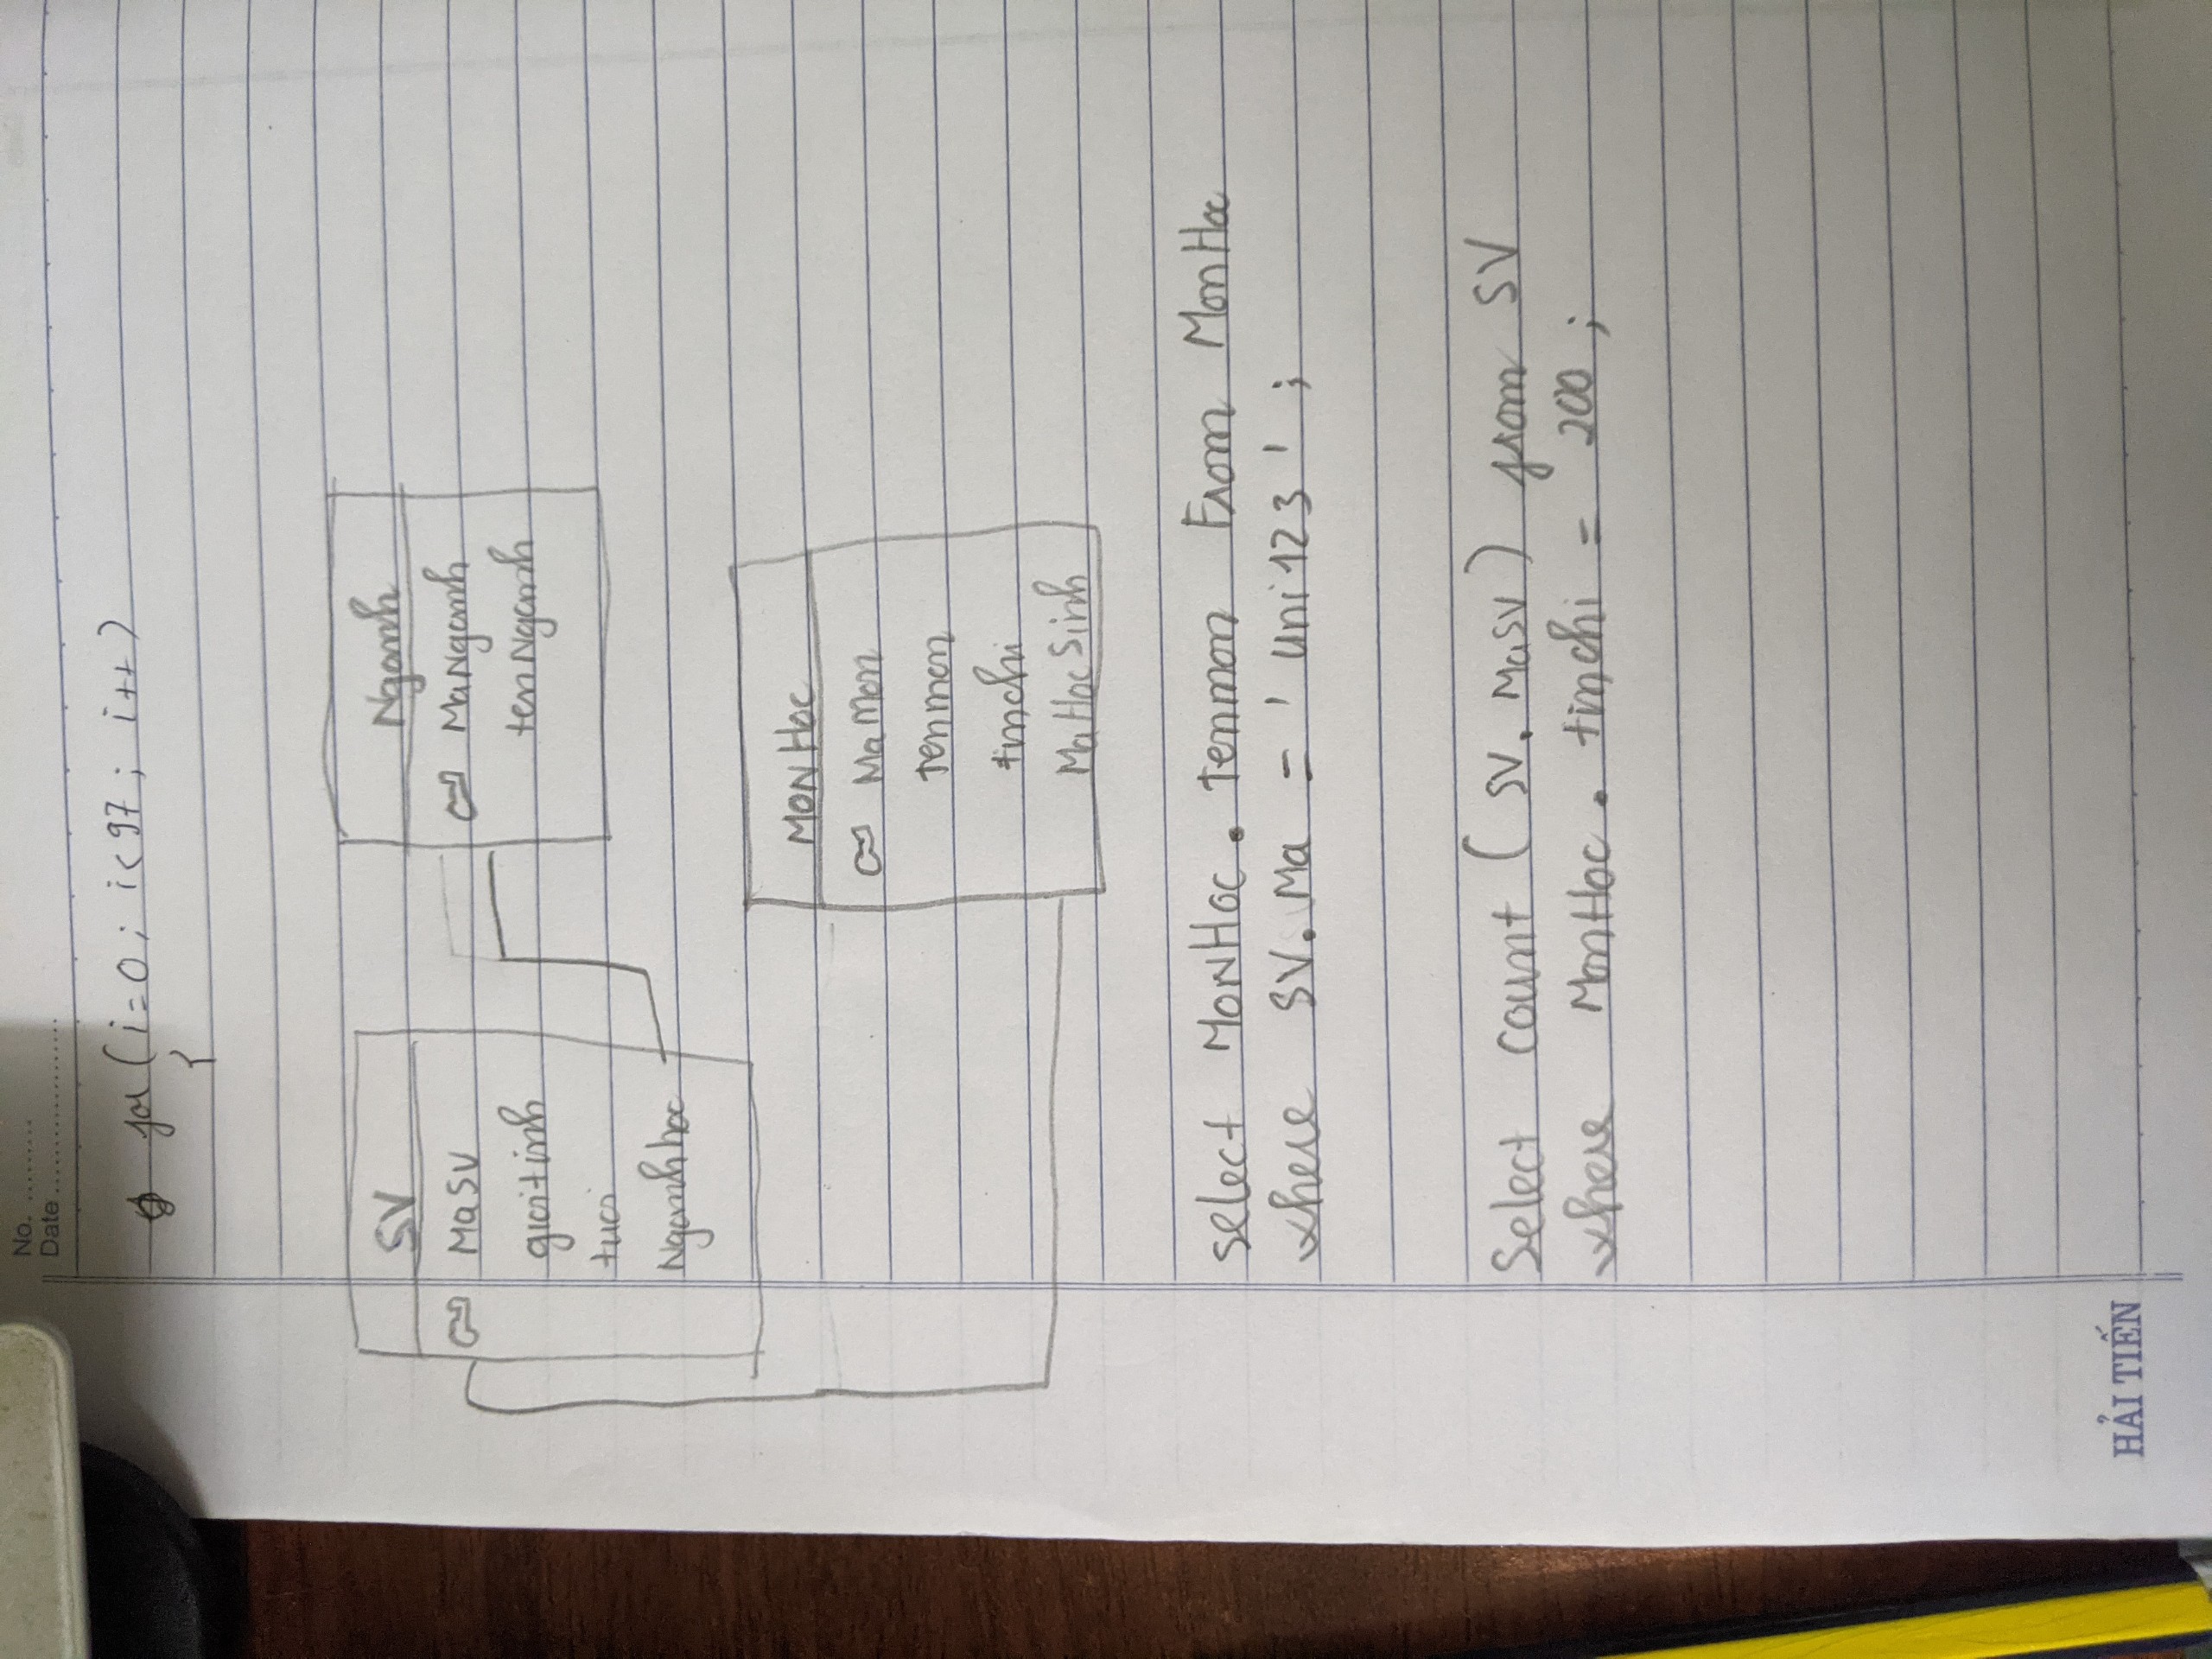 No. ..........
Date ..........
for (i=0; i<97; i++)
{
SV
MaSV
gioitinh
tuoi
Nganhhoc
Nganh
MaNganh
tenNganh
MONHoc
MaMon
Tenmon
tinchi
MaHocSinh
Select MONHoc.Tenmon From MonHoc
where SV.Ma = 'Uni123';
Select count (SV.MaSV) from SV
where MonHoc.tinchi = 200;
HẢI TIẾN